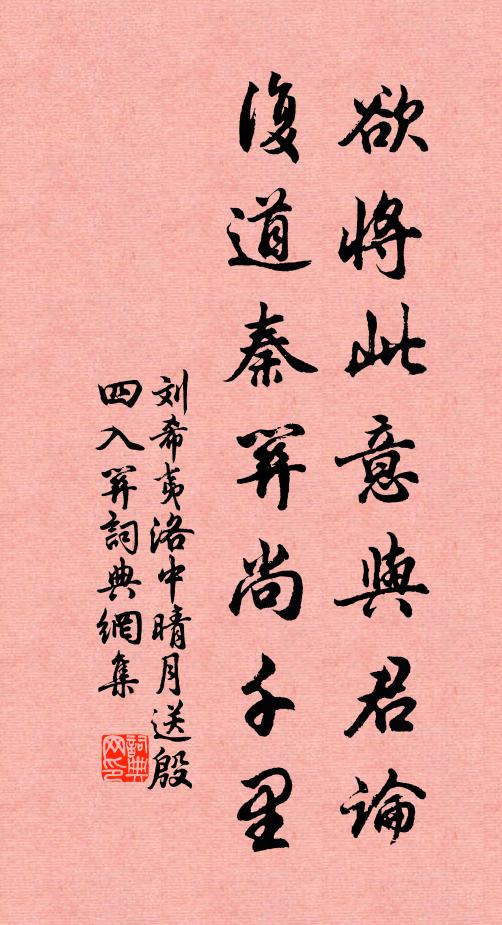 欲將此意與君論
復道秦関尚千里
刘希夷洛中晴月送殷
四入関詞典網集
詞典
网印